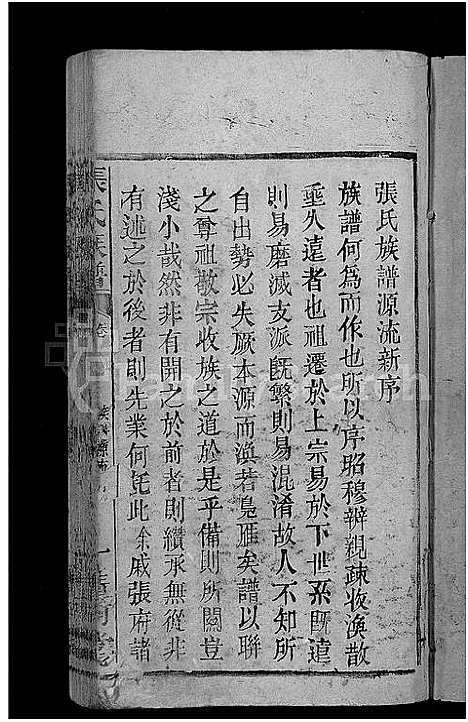 張氏族譜源流新序
族譜何為而作也所以序昭穆辨親疎收渙散
垂久遠者也祖遷於上宗易於下世系既遠
則易磨滅支派既繁則易混淆故人不知所
自出勢必失厥本源而渙若鳧雁矣譜以聯
之尊祖敬宗收族之道於是乎備則所關豈
淺小哉然非有開之於前者則纘承無從非
有述之於後者則先業何托此余戚張府諸
張氏族譜
卷